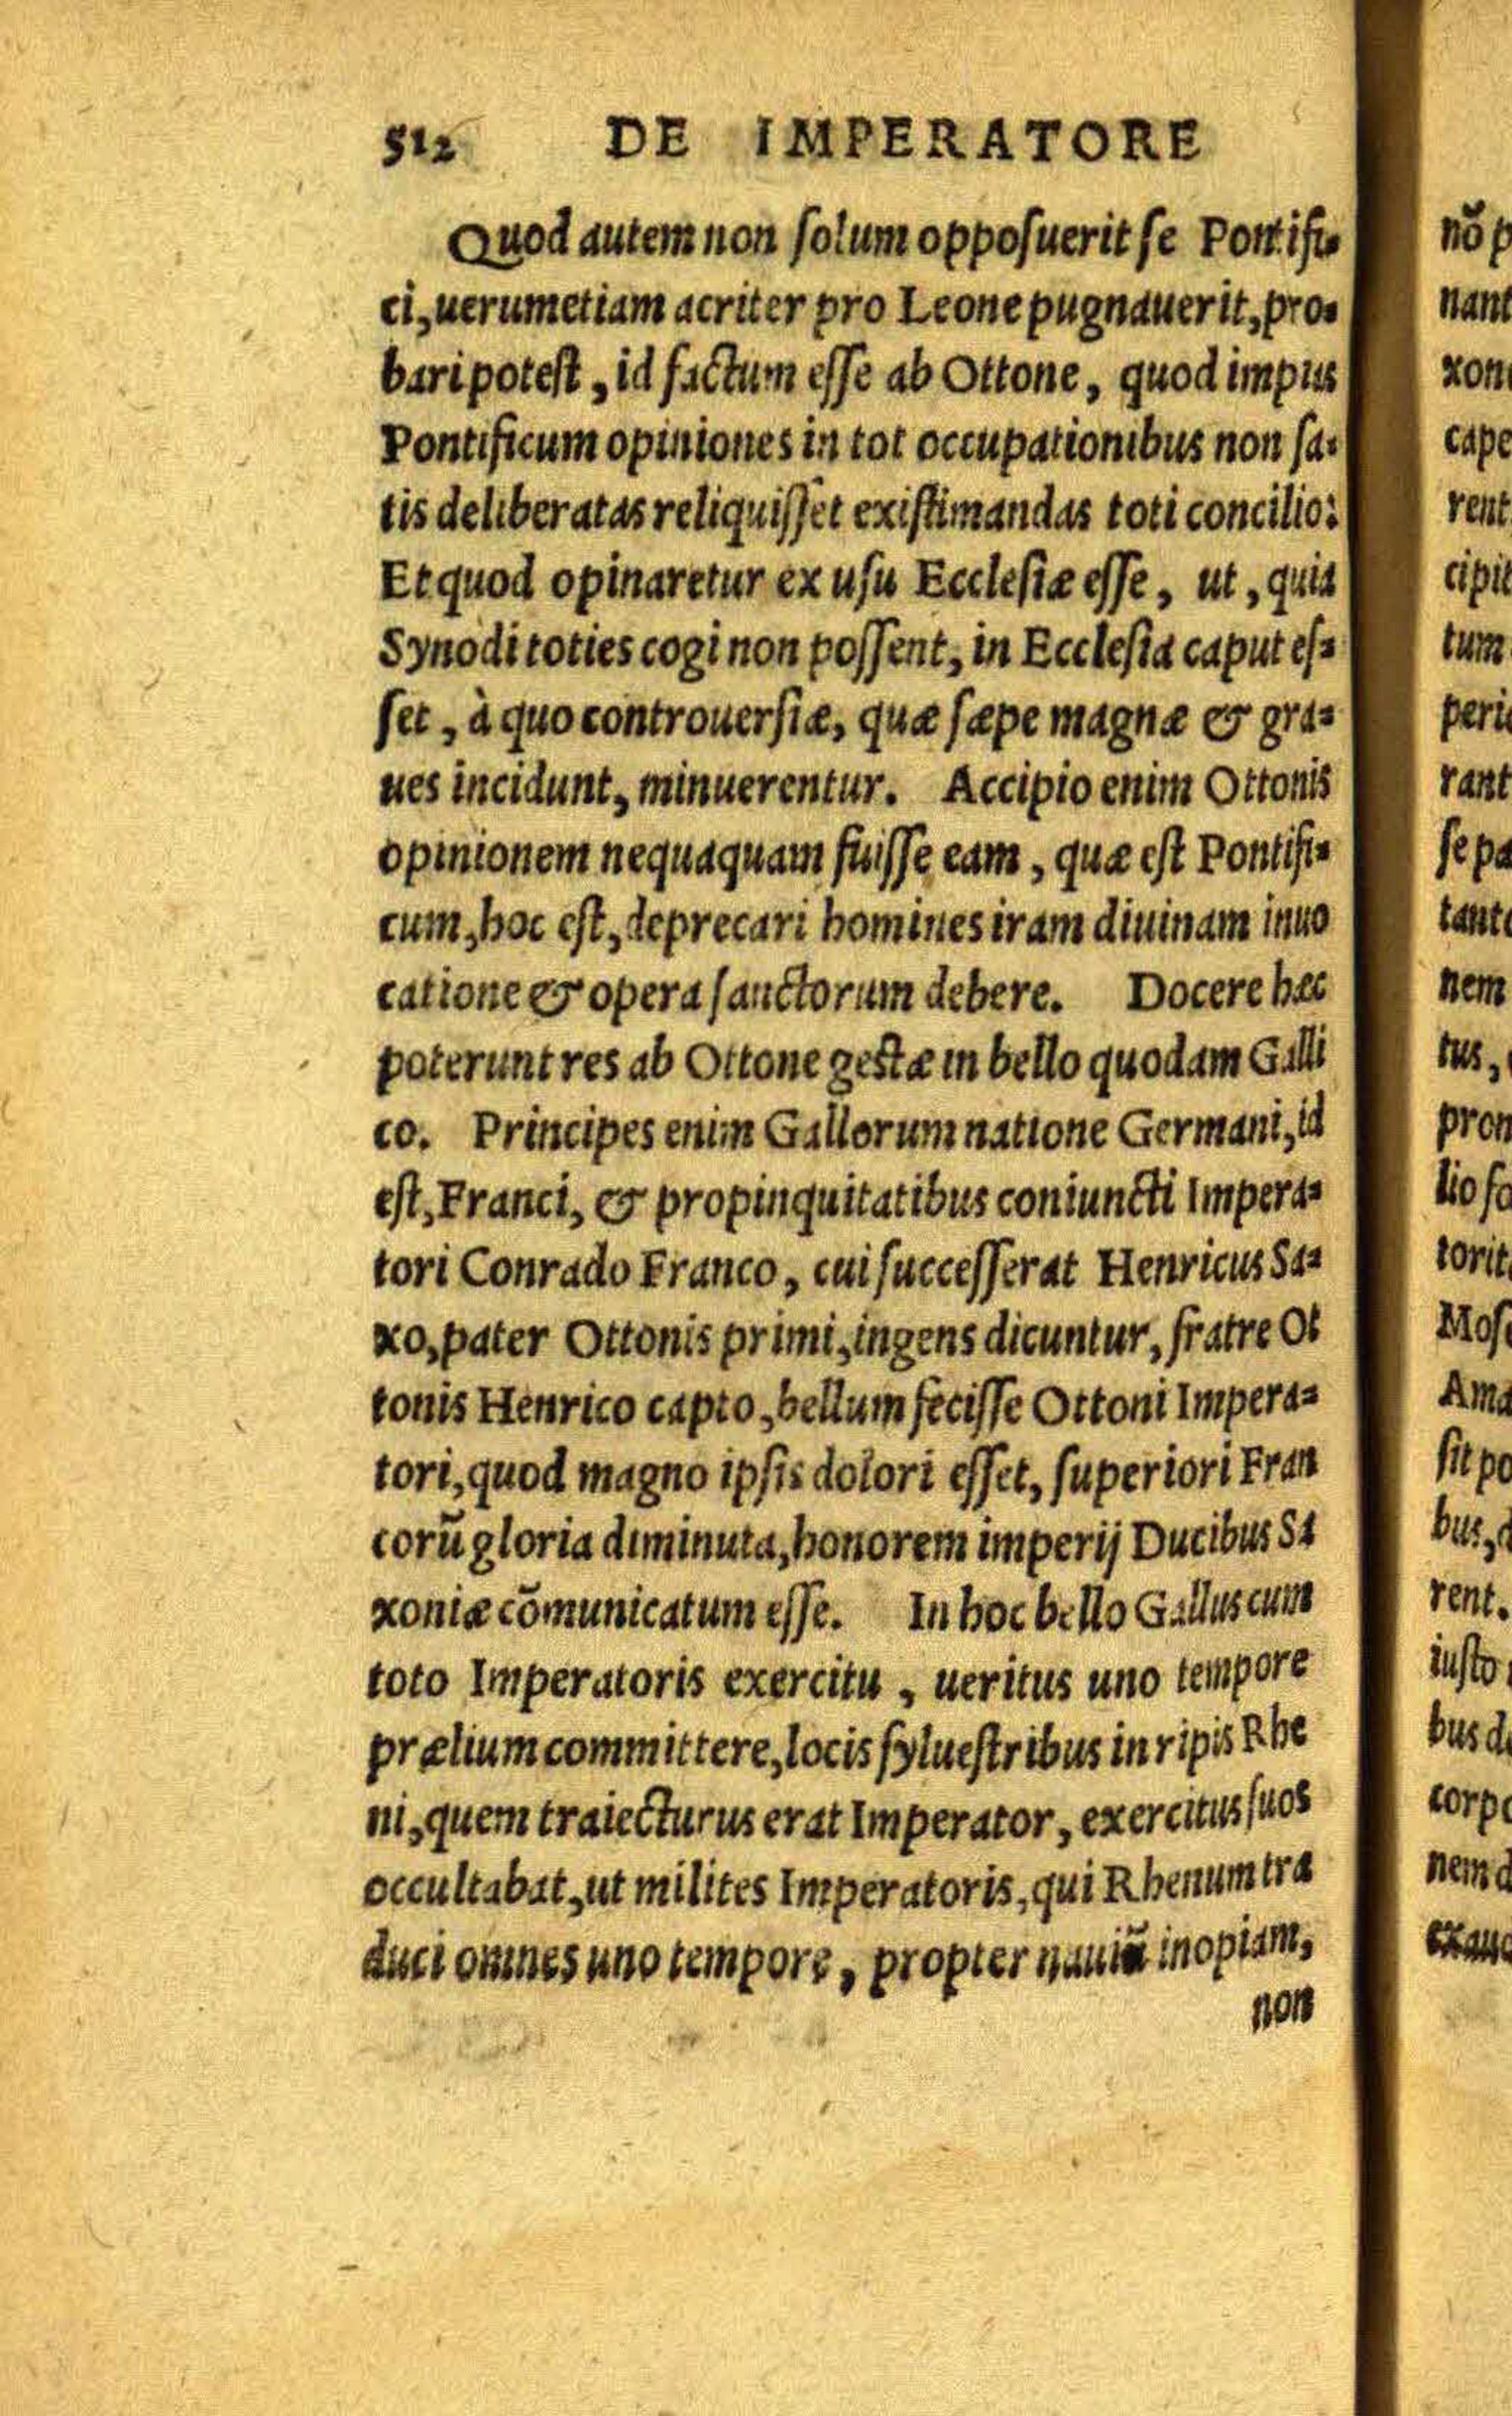 512 DE IMPERATORE
Quod autem non ſolum oppoſuerit ſe Pontifi-
ci, uerumetiam acriter pro Leone pugnauerit, pro-
bari poteſt, id factum eſſe ab Ottone, quod impias
Pontificum opiniones in tot occupationibus non ſa-
tis deliberatas reliquiſſet exiſtimandas toti concilio:
Et quod opinaretur ex uſu Eccleſiæ eſſe, ut, quia
Synodi toties cogi non poſſent, in Eccleſia caput eſ-
ſet, à quo controuerſiæ, quæ ſæpe magnæ & gra-
ues incidunt, minuerentur. Accipio enim Ottonis
opinionem nequaquam fuiſſe eam, quæ eſt Pontifi-
cum, hoc eſt, deprecari homines iram diuinam inuo
catione & opera ſanctorum debere. Docere hæc
poterunt res ab Ottone geſtæ in bello quodam Galli
co. Principes enim Gallorum natione Germani, id
eſt, Franci, & propinquitatibus coniuncti Impera-
tori Conrado Franco, cui ſucceſſerat Henricus Sa-
xo, pater Ottonis primi, ingens dicuntur, fratre Ot
tonis Henrico capto, bellum feciſſe Ottoni Impera-
tori, quod magno ipſis dolori eſſet, ſuperiori Fran
corũ gloria diminuta, honorem imperij Ducibus Sa
xoniæ cõmunicatum eſſe. In hoc bello Gallus cum
toto Imperatoris exercitu, ueritus uno tempore
prælium committere, locis ſylueſtribus in ripis Rhe
ni, quem traiecturus erat Imperator, exercitus ſuos
occultabat, ut milites Imperatoris, qui Rhenum tra
duci omnes uno tempore, propter nauiũ inopiam,
non
nõ p
nant
xoni
cape
rent
cipit
tum
peri
rant
ſe pa
tant
nem
tus,
pron
lio ſ
torit
Moſ
Ama
ſit po
bus,
rent.
iuſto
bus d
corp
nem d
exau